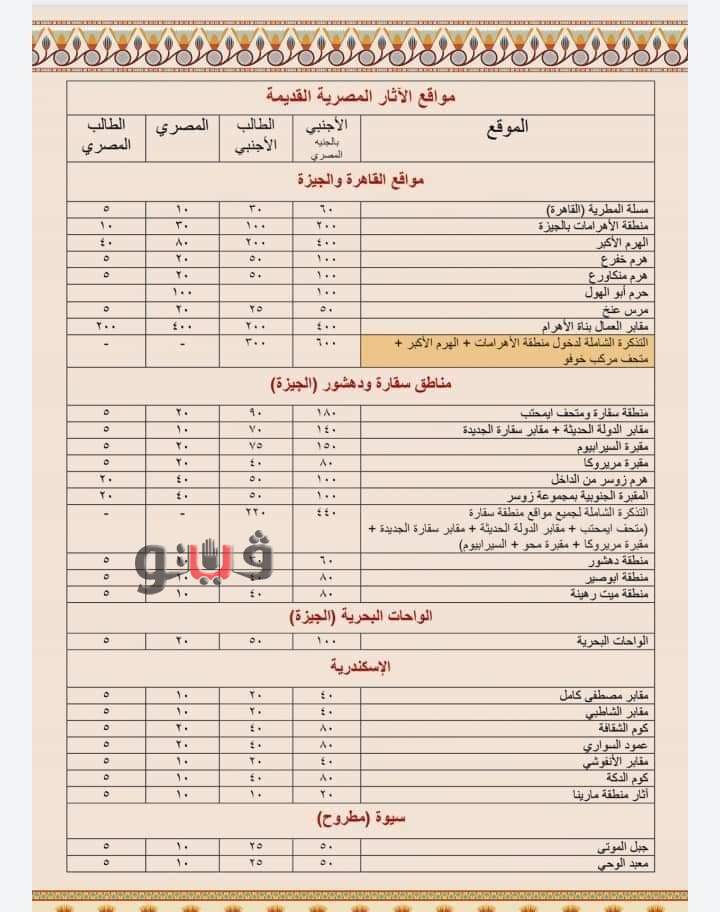 مواقع الآثار المصرية القديمة
الموقع الأجنبي بالجنيه المصري الطالب الأجنبي المصري الطالب المصري
مواقع القاهرة والجيزة
مسلة المطرية (القاهرة) ٦٠ ٣٠ ١٠ ٥
منطقة الأهرامات بالجيزة ٢٠٠ ١٠٠ ٣٠ ١٠
الهرم الأكبر ٤٠٠ ٢٠٠ ٨٠ ٤٠
هرم خفرع ١٠٠ ٥٠ ٢٠ ٥
هرم منكاورع ١٠٠ ٥٠ ٢٠ ٥
حرم أبو الهول ١٠٠ ١٠٠
مرس عنخ ٥٠ ٢٥ ٢٠ ٥
مقابر العمال بناة الأهرام ٤٠٠ ٢٠٠ ٤٠٠ ٢٠٠
التذكرة الشاملة لدخول منطقة الأهرامات + الهرم الأكبر + ٦٠٠ ٣٠٠ - -
متحف مركب خوفو
مناطق سقارة ودهشور (الجيزة)
منطقة سقارة ومتحف ايمحتب ١٨٠ ٩٠ ٢٠ ٥
مقابر الدولة الحديثة + مقابر سقارة الجديدة ١٤٠ ٧٠ ١٠ ٥
مقبرة السيرابيوم ١٥٠ ٧٥ ٢٠ ٥
مقبرة مريروكا ٨٠ ٤٠ ٢٠ ٥
هرم زوسر من الداخل ١٠٠ ٥٠ ٤٠ ٢٠
المقبرة الجنوبية بمجموعة زوسر ١٠٠ ٥٠ ٤٠ ٢٠
التذكرة الشاملة لجميع مواقع منطقة سقارة ٤٤٠ ٢٢٠ - -
(متحف ايمحتب + مقابر الدولة الحديثة + مقابر سقارة الجديدة +
مقبرة مريروكا + مقبرة محو + السيرابيوم)
منطقة دهشور ٦٠ ٥
منطقة ابوصير ٨٠ ٤٠ ١٠ ٥
منطقة ميت رهينة ٨٠ ٤٠ ١٠ ٥
ڤيتو
الواحات البحرية (الجيزة)
الواحات البحرية ١٠٠ ٥٠ ٢٠ ٥
الإسكندرية
مقابر مصطفى كامل ٤٠ ٢٠ ١٠ ٥
مقابر الشاطبي ٤٠ ٢٠ ١٠ ٥
كوم الشقافة ٨٠ ٤٠ ٢٠ ٥
عمود السواري ٨٠ ٤٠ ٢٠ ٥
مقابر الأنفوشي ٤٠ ٢٠ ١٠ ٥
كوم الدكة ٨٠ ٤٠ ١٠ ٥
آثار منطقة مارينا ٢٠ ١٠ ١٠ ٥
سيوة (مطروح)
جبل الموتى ٥٠ ٢٥ ١٠ ٥
معبد الوحي ٥٠ ٢٥ ١٠ ٥